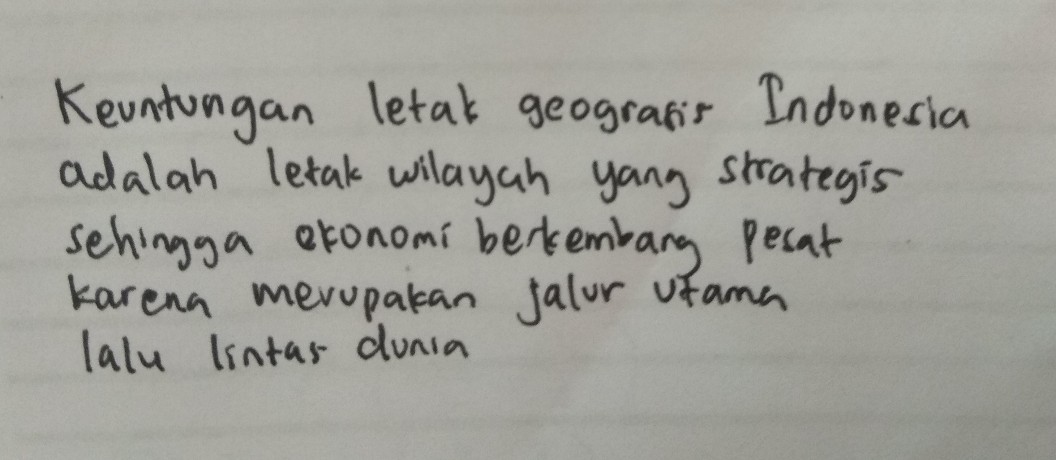 Keuntungan letak geografis Indonesia
adalah letak wilayah yang strategis
sehingga ekonomi berkembang pesat
karena merupakan jalur utama
lalu lintas dunia